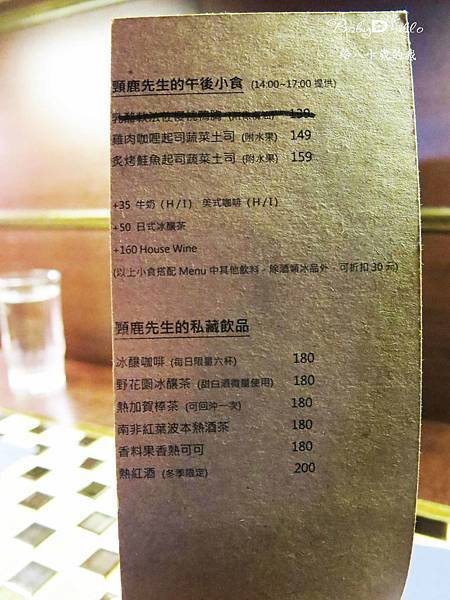 頸鹿先生的午後小食 (14:00~17:00 提供)
139
雞肉咖哩起司蔬菜土司 (附水果) 149
炙烤鮭魚起司蔬菜土司 (附水果) 159
+35 牛奶 (H / I) 美式咖啡 (H / I)
+50 日式冰釀茶
+160 House Wine
(以上小食搭配 Menu 中其他飲料，除酒類冰品外，可折扣 30 元)
頸鹿先生的私藏飲品
冰釀咖啡 (每日限量六杯) 180
野花園冰釀茶 (甜白酒微量使用) 180
熱加賀棒茶 (可回沖一次) 180
南非紅葉波本熱酒茶 180
香料果香熱可可 180
熱紅酒 (冬季限定) 200